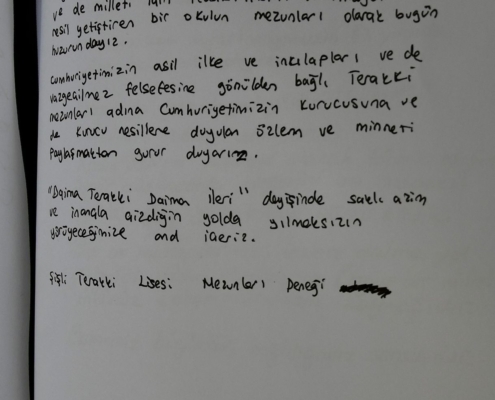 ve de milleti için
nesil yetiştiren bir okulun mezunları olarak bugün
huzurundayız.
Cumhuriyetimizin asil ilke ve inkılapları ve de
vazgeçilmez felsefesine gönülden bağlı Terakki
mezunları adına Cumhuriyetimizin kurucusuna ve
de kurucu nesillere duyulan özlem ve minneti
paylaşmaktan gurur duyarız.
"Daima Terakki Daima ileri" deyişinde saklı azim
ve inançla çizdiğin yolda yılmaksızın
yürüyeceğimize and içeriz.
Şişli Terakki Lisesi Mezunları Derneği